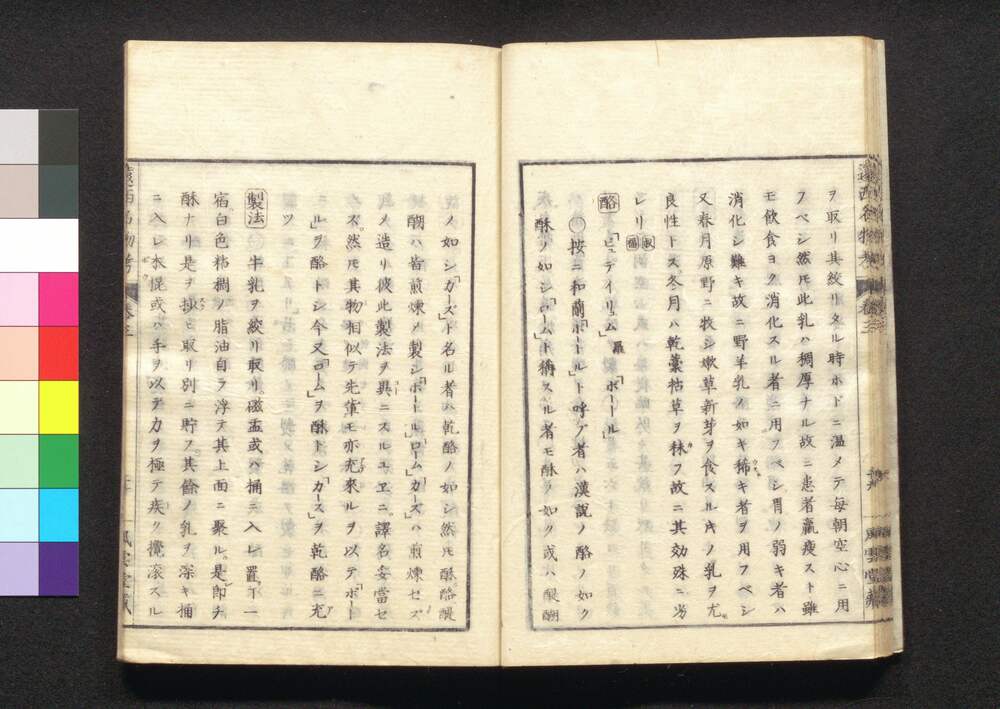 ヲ取リ其絞リタル時ホドニ温メテ毎朝空心ニ用
フベシ然モ此乳ハ稠厚ナル故ニ患者羸痩スト雖
モ飲食ヨク消化スル者ニ用フベシ胃ノ弱キ者ハ
消化シ難キ故ニ野羊乳ノ如キ稀キ者ヲ用フベシ
又春月原野ニ牧シ嫩草新芽ヲ食スル片ノ乳ヲ尤
良性トス冬月ハ乾藁枯草ヲ秣フ故ニ其効殊ニ劣
レリ
酪 「ビュテイリュム」羅 「ボートル」
按ニ和蘭「ボートル」ト呼ブ者ハ漢説ノ酪ノ如ク
酥ノ如シ「ローム」ト稱スル者モ酥ノ如ク或ハ醍醐
ノ如シ「カーズ」ト名ル者ハ乾酪ノ如シ然モ酥酪醍
醐ハ皆煎煉メ製シ「ボートル」「ローム」「カーズ」ハ煎煉セズ
メ造リ彼此製法ヲ異ニスルユヱニ譯名妥當セ
ズ然モ其物相似テ先輩モ亦充來ルヲ以テ「ボート
ル」ヲ酪トシ今又「ローム」ヲ酥トシ「カーズ」ヲ乾酪ニ充ツ
製法 牛乳ヲ絞リ取リ磁盂或ハ桶ニ入レ置下一
宿白色粘稠ノ脂油自ラ浮テ其上面ニ聚ル是即チ
酥ナリ是ヲ抄ヒ取リ別ニ貯フ其餘ノ乳ヲ深キ桶
ニ入レ木棍或ハ手ヲ以テ力ヲ極テ疾ク攪滾スル
遠西名物考 卷三
風雲堂藏